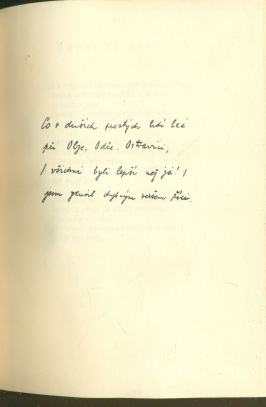 Co v duších prostých lidí lká
při Olze, Odře, Ostravici,
/ všichni byli lepší než já! /
jsem zkusil chybným veršem říci.